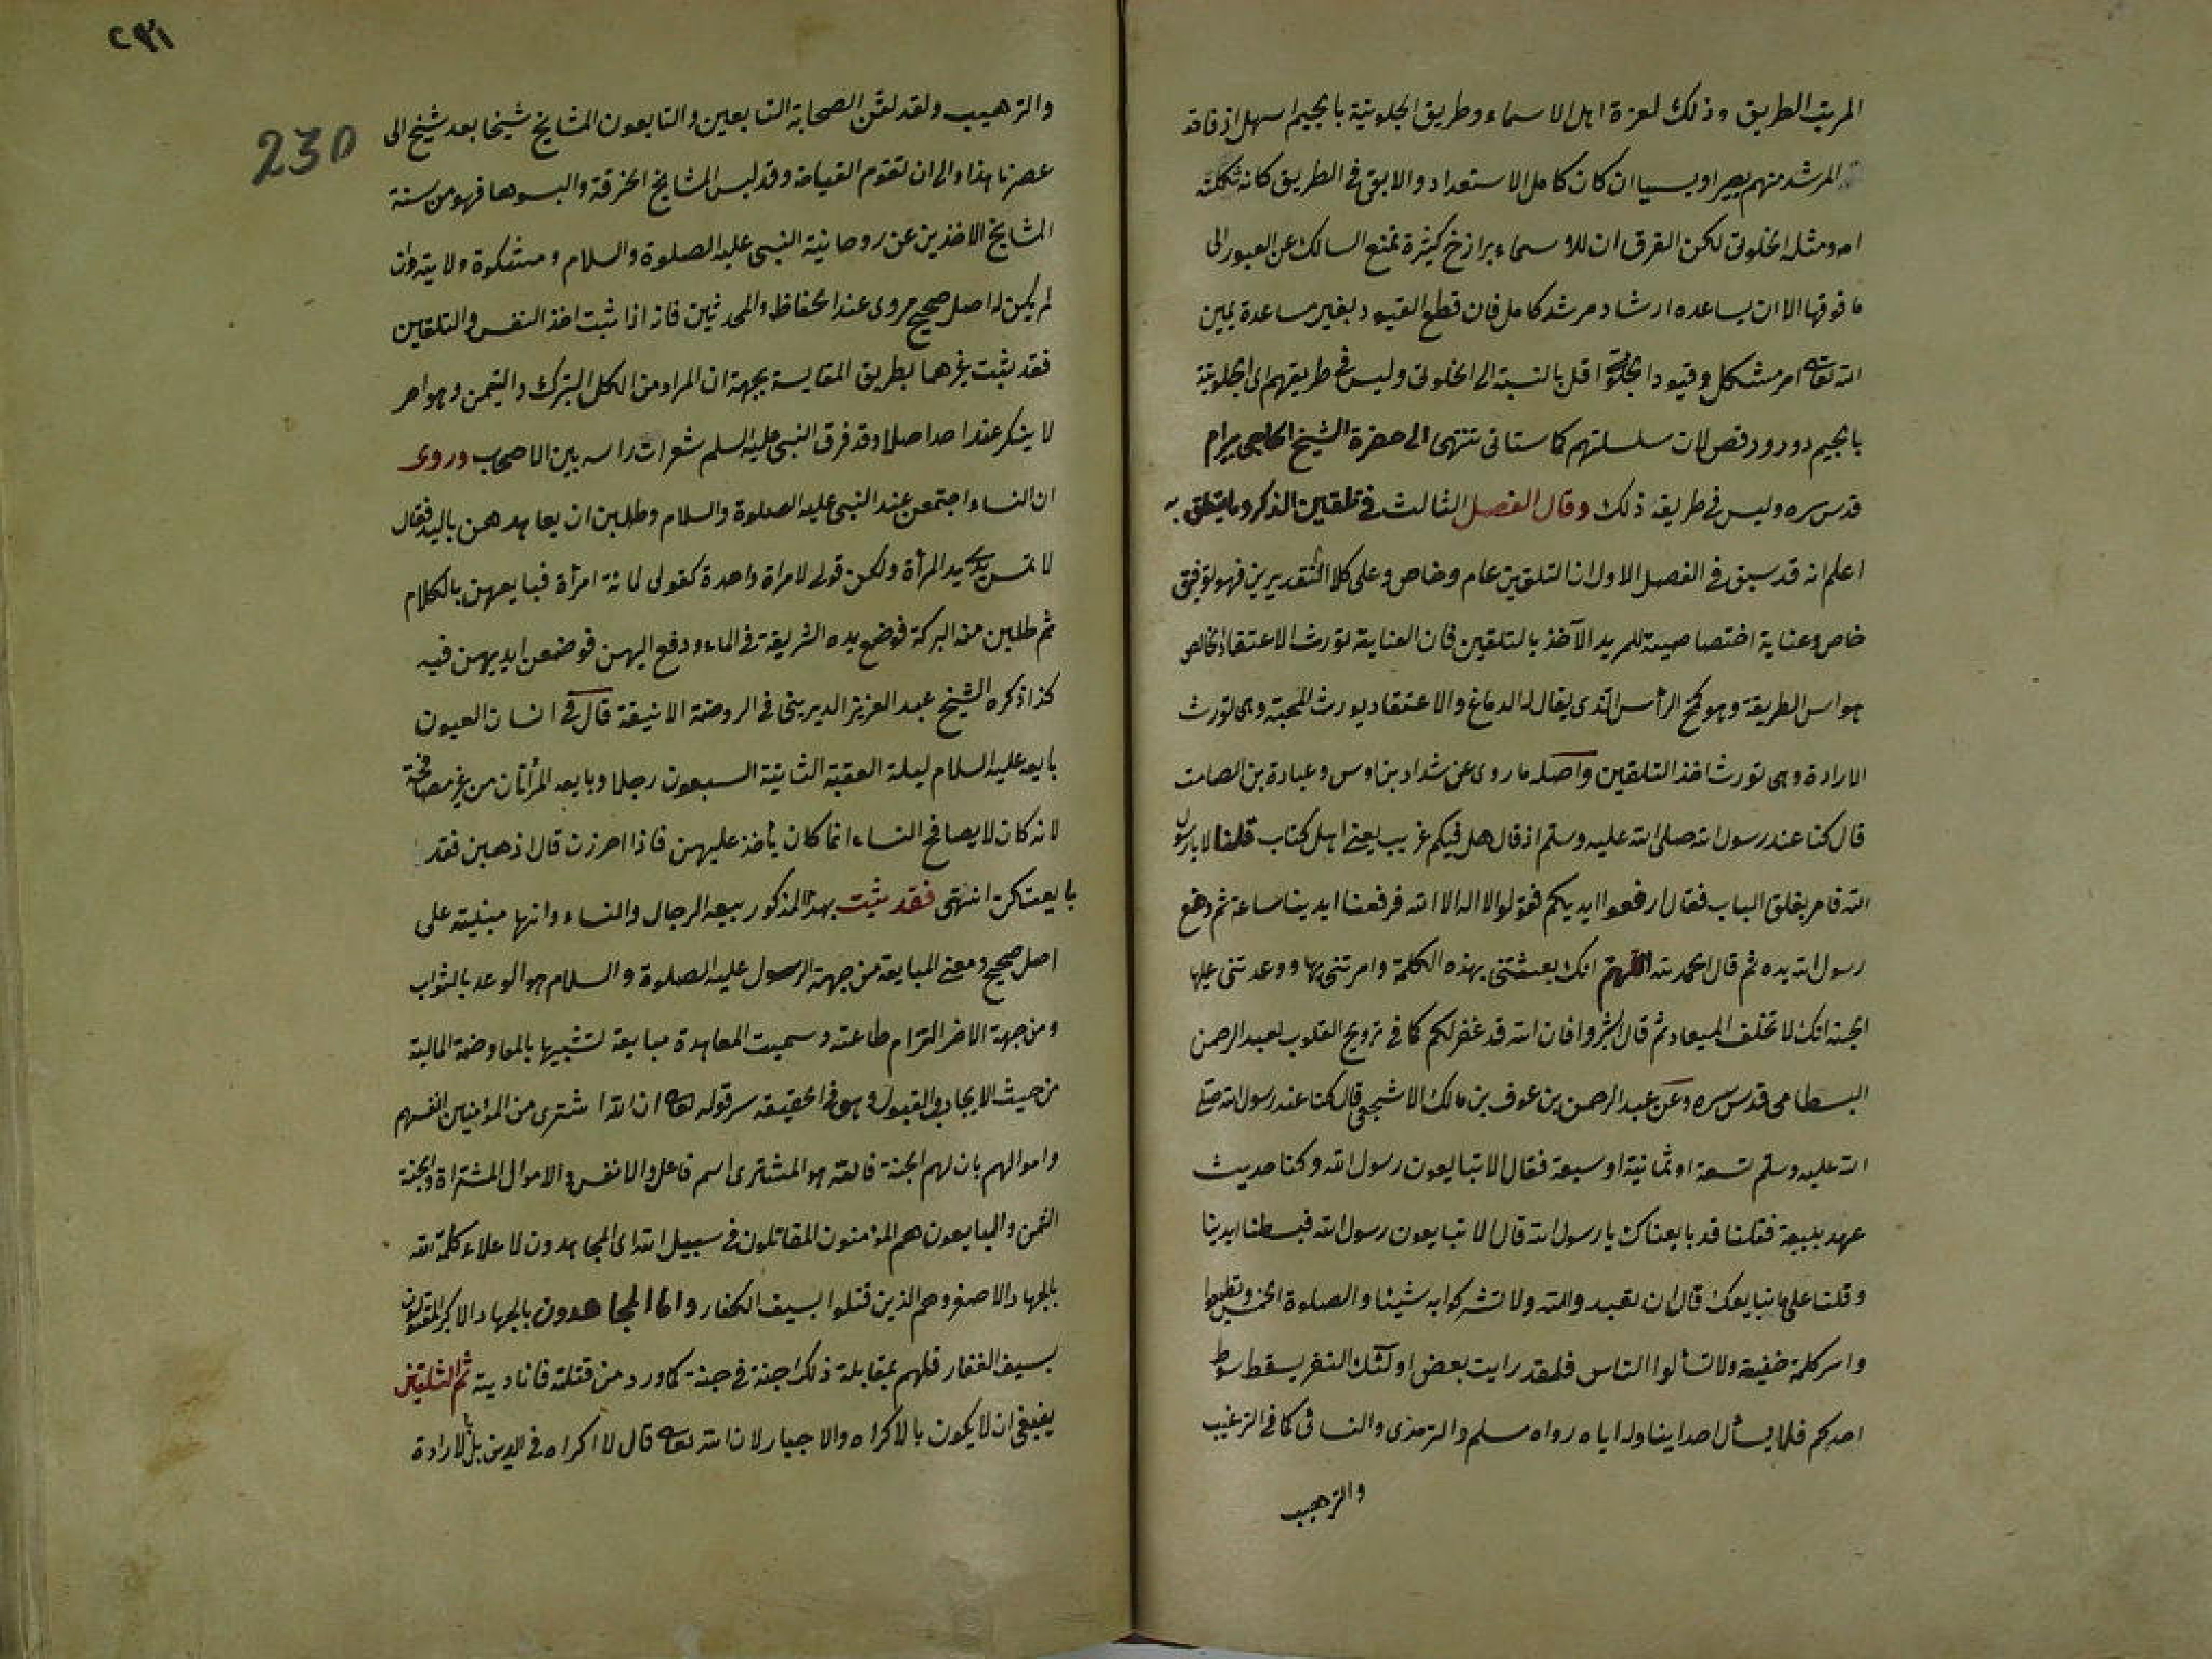 المرتب الطريق وذلك لعزة اهل الاسماء وطريق الجلوتية بالجيم اسهل اذ فاقد
المرشد منهم يصير اويسيا ان كان كامل الاستعداد والا بقى فى الطريق كانه ثكلته
امه ومثله الخلوتى لكن الفرق ان للاسماء برازخ كثيرة تمنع السالك عن العبور الى
ما فوقها الا ان يساعده ارشاد مرشد كامل فان قطع القيود بغير مساعدة يمين
الله تعالى امر مشكل وقيود الجلوتى اقل بالنسبة الى الخلوتى وليس فى طريقهم اى الجلوتية
بالجيم دور ورقص لان سلسلتهم كما ستاتى تنتهى الى حضرة الشيخ الحاجى بيرام
قدس سره وليس فى طريقه ذلك وقال الفصل الثالث فى تلقين الذكر وما يتعلق به
اعلم انه قد سبق فى الفصل الاول ان التلقين عام وخاص وعلى كلا التقديرين فهو توفيق
خاص وعناية اختصاصية للمريد الآخذ بالتلقين فان العناية تورث الاعتقاد الخالص
هو اس الطريقة وهو كمخ الرأس الذى يقال له الدماغ والاعتقاد يورث المحبة وهى تورث
الارادة وهى تورث اخذ التلقين واصله ما روى عن شداد بن اوس وعبادة بن الصامت
قال كنا عند رسول الله صلى الله عليه وسلم اذ قال هل فيكم غريب يعنى اهل كتاب قلنا لا يا رسول
الله فامر بغلق الباب فقال ارفعوا ايديكم فقولوا لا اله الا الله فرفعنا ايدينا ساعة ثم وضع
رسول الله يده ثم قال الحمد لله اللهم انك بعثتنى بهذه الكلمة وامرتنى بها ووعدتنى عليها
الجنة انك لا تخلف الميعاد ثم قال ابشروا فان الله قد غفر لكم كما فى ترويح القلوب لعبد الرحمن
البسطامى قدس سره وعن عبد الرحمن بن عوف بن مالك الاشجعى قال كنا عند رسول الله صلى
الله عليه وسلم تسعة او ثمانية او سبعة فقال الا تبايعون رسول الله وكنا حديث
عهد ببيعة فقلنا قد بايعناك يا رسول الله قال الا تبايعون رسول الله فبسطنا ايدينا
وقلنا على ما نبايعك قال ان تعبدوا الله ولا تشركوا به شيئا والصلوة الخمس وتطيعوا
واسر كلمة خفية ولا تسألوا الناس فلقد رايت بعض اولئك النفر يسقط سوط
احدكم فلا يسأل احدا يناوله اياه رواه مسلم والترمذى والنسائى كما فى الترغيب
والترهيب
٢٣١
230
والترهيب ولقد لقن الصحابة التابعين والتابعون المشايخ شيخا بعد شيخ الى
عصرنا هذا والى ان تقوم القيامة وقد لبس المشايخ الخرقة والبسوها فهو من سنة
المشايخ الاخذين عن روحانية النبى عليه الصلوة والسلام ومشكوة ولايته وان
لم يكن له اصل صحيح مروى عند الحفاظ والمحدثين فانه اذا ثبت اخذ النفس والتلقين
فقد يثبت غيرهما بطريق المقايسة بجهة ان المراد من الكل التبرك والتيمن وهو امر
لا ينكر عند احد اصلا وقد فرق النبى عليه السلم شعرات راسه بين الاصحاب وروى
ان النساء اجتمعن عند النبى عليه الصلوة والسلام وطلبن ان يعاهدهن باليد فقال
لا تمس يدى يد المرأة ولكن قولى لامراة واحدة كقولى لمائة امرأة فبايعهن بالكلام
ثم طلبن منه البركة فوضع يده الشريفة فى الماء ودفع اليهن فوضعن ايديهن فيه
كذا ذكره الشيخ عبد العزيز الديرينى فى الروضة الانيقة قال فى انسان العيون
بايعه عليه السلام ليلة العقبة الثانية السبعون رجلا وبايعه المرأتان من غير مصافحة
لانه كان لا يصافح النساء انما كان يأخذ عليهن فاذا احرزن قال اذهبن فقد
بايعتكن انتهى فقد يثبت بهذا المذكور بيعه الرجال والنساء وانها مبنية على
اصل صحيح ومعنى المبايعة من جهة الرسول عليه الصلوة والسلام هو الوعد بالثواب
ومن جهة الاخر التزام طاعته وسميت المعاهدة مبايعة تشبيها بالمعاوضة المالية
من حيث الايجاب والقبول وهى فى الحقيقه سر قوله تعالى ان الله اشترى من المؤمنين انفسهم
واموالهم بان لهم الجنة فالله هو المشترى اسم فاعل والانفس والاموال المشتراة والجنة
الثمن والمبايعون هم المؤمنون المقاتلون فى سبيل الله اى المجاهدون لاعلاء كلمة الله
بالجهاد الاصغر وهم الذين قتلوا بسيف الكفار واما المجاهدون بالجهاد الاكبر المقتولون
بسيف الغفار فلهم بمقابلة ذلك جنة فى جنة كما ورد من قتلته فانا ديته ثم التلقين
ينبغى ان لا يكون بالاكراه والاجبار لان الله تعالى قال لا اكراه فى الدين بل بالارادة